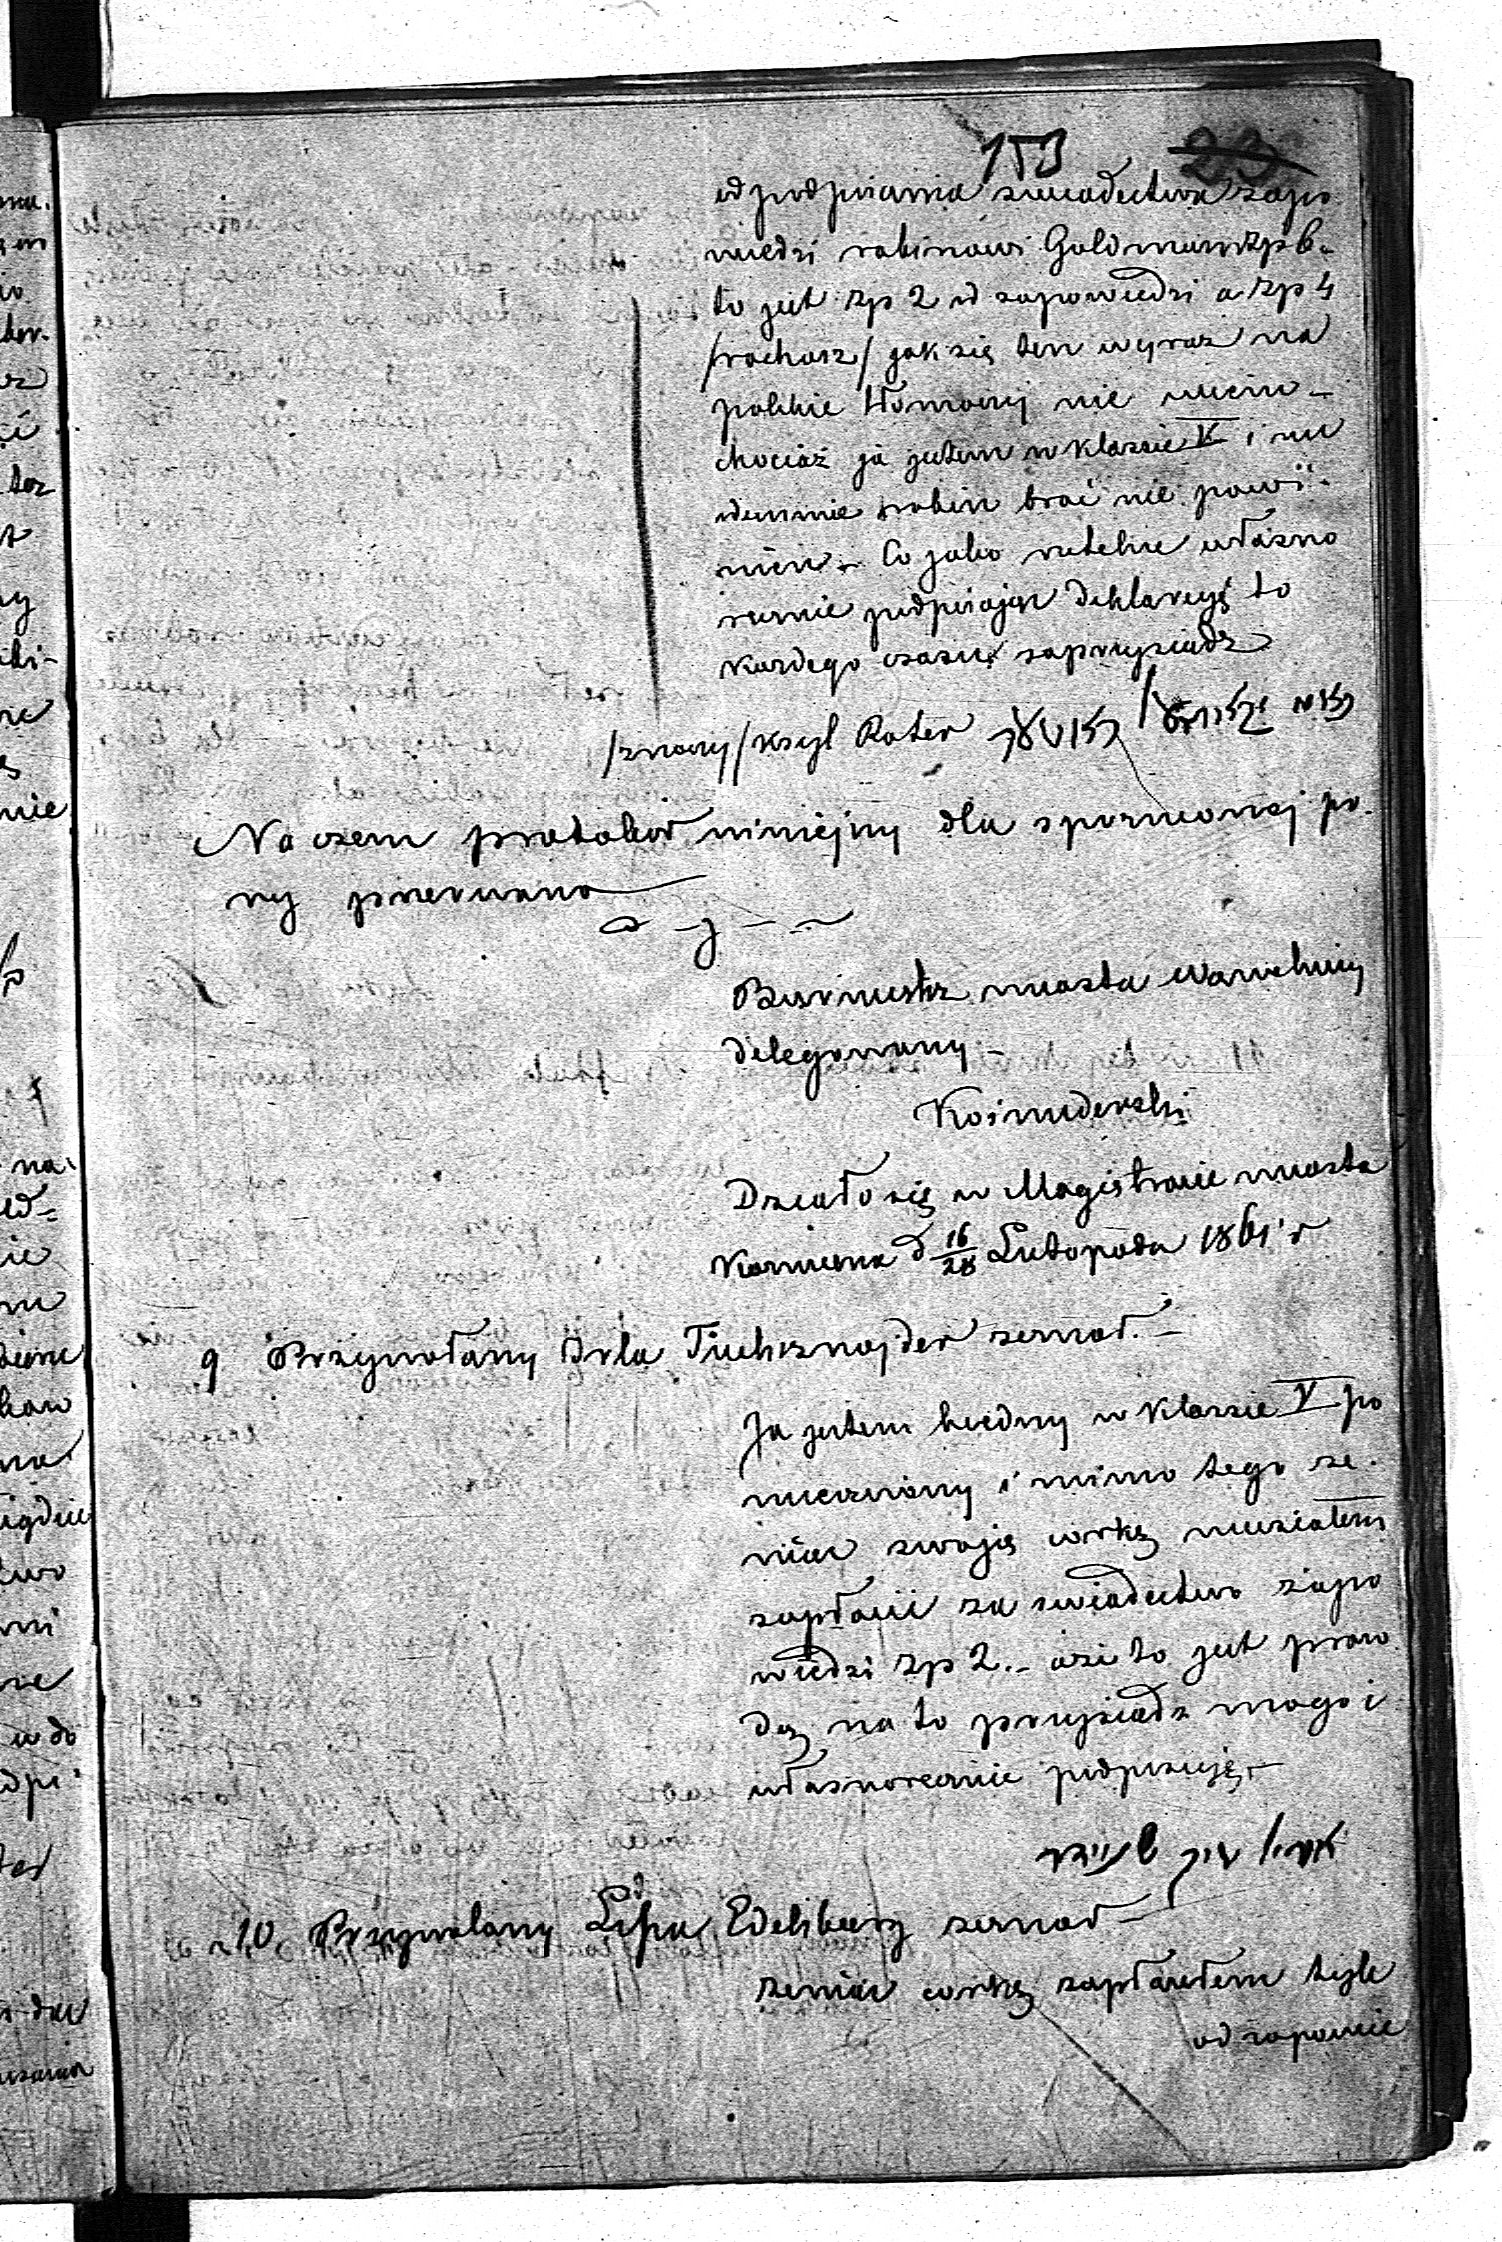 153 23
od podpisania swiadectwa zapo
wiedzi rabinowi Goldman zp 6.
to jest zp 2 od zapowiedzi a zp 4
/rachasz/ jak się ten wyraz na
polskie tłomaczy nie wiem –
chociaż ja jestem w klassie V i
odemnie rabin brać nie powi-
nien. – Co jako rzetelnie własno
ręcznie podpisując deklaracyę to
każdego czasu zaprzysiądz
/znany/ Roter
Na czem protokoł niniejszy dla spoznionej po-
ry przerwano
Burmistrz miasta
delegowany –
Kośmiderski
Działo się w Magistracie miasta
d 16/28 Listopada 1861 r
9 Przywołany Srla Tuchsznajder zeznał. –
Ja jestem biedny w klassie V po
mieszczony i mimo tego że-
niąc swoję corkę musiałem
zapłacić za swiadectwo zapo
wiedzi zp 2. – a że to jest praw
dą na to przysiądz mogę i
własnoręcznie podpisuję. –
שנײדר
10. Przywołany Lipa Edelsberg zeznał –
żeniąc corkę zapłaciłem tyle
od zapowie